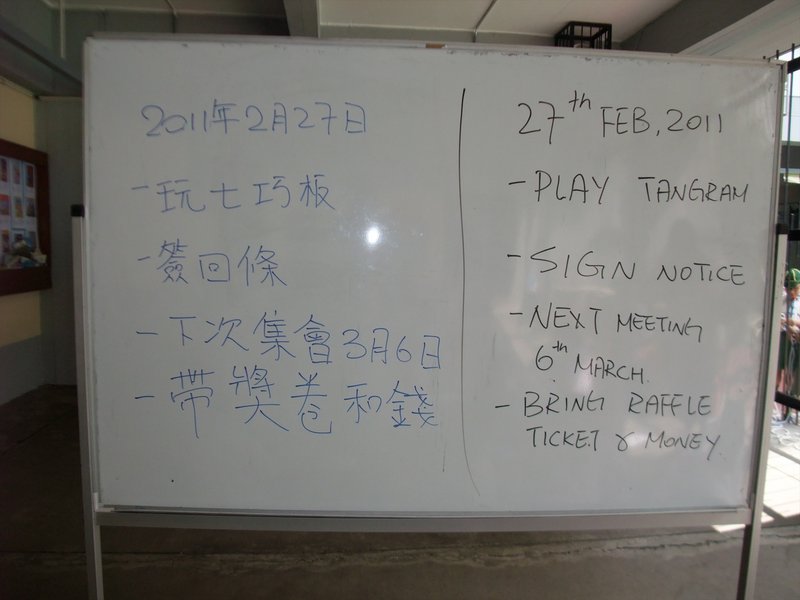 2011年2月27日
-玩七巧板
-簽回條
-下次集會3月6日
-帶獎卷和錢
27th FEB, 2011
-PLAY TANGRAM
-SIGN NOTICE
-NEXT MEETING
6th MARCH.
-BRING RAFFLE
TICKET & MONEY.